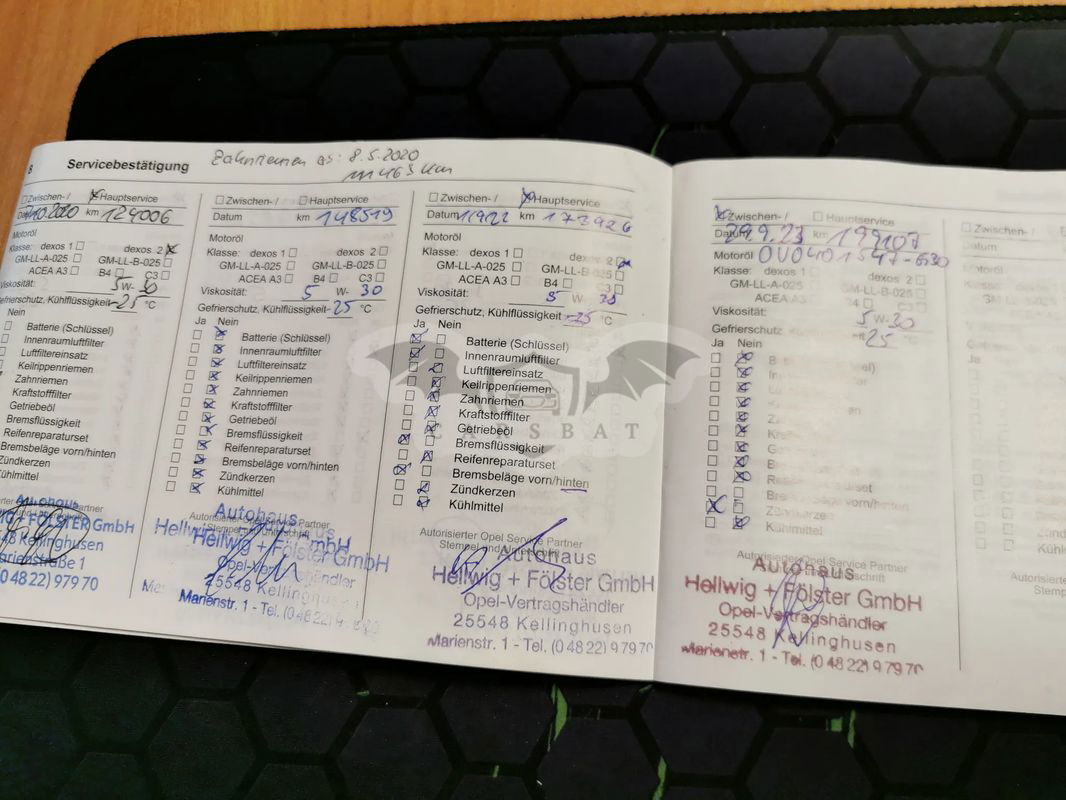 8 Servicebestätigung
Zahnriemen es: 8.5.2020
km
Zwischen-/ Hauptservice
10.2020 km 124006
Motoröl
Klasse: dexos 1 dexos 2
GM-LL-A-025 GM-LL-B-025
ACEA A3 B4 C3
Viskosität: 5W-30
Gefrierschutz, Kühlflüssigkeit -25 °C
Nein
Batterie (Schlüssel)
Innenraumfilter
Luftfiltereinsatz
Keilrippenriemen
Zahnriemen
Kraftstofffilter
Getriebeöl
Bremsflüssigkeit
Reifenreparaturset
Bremsbeläge vorn/hinten
Zündkerzen
Kühlmittel
Autohaus
FÖLSTER GmbH
Kellinghusen
arienstraße 1
(0 48 22) 979 70
Zwischen-/ Hauptservice
Datum km 148519
Motoröl
Klasse: dexos 1 dexos 2
GM-LL-A-025 GM-LL-B-025
ACEA A3 B4 C3
Viskosität: 5 W- 30
Gefrierschutz, Kühlflüssigkeit -25 °C
Ja Nein
Batterie (Schlüssel)
Innenraumluftfilter
Luftfiltereinsatz
Keilrippenriemen
Zahnriemen
Kraftstofffilter
Getriebeöl
Bremsflüssigkeit
Reifenreparaturset
Bremsbeläge vorn/hinten
Zündkerzen
Kühlmittel
Autorisierter Opel Service Partner
Autohaus
Hellwig + Fölster GmbH
Opel-Vertragshändler
25548 Kellinghusen
Marienstr. 1 - Tel. (0 48 22)
Zwischen-/ Hauptservice
Datum km 172926
Motoröl
Klasse: dexos 1 dexos 2
GM-LL-A-025 GM-LL-B-025
ACEA A3 B4 C3
Viskosität: 5 W- 30
Gefrierschutz, Kühlflüssigkeit -25 °C
Ja Nein
Batterie (Schlüssel)
Innenraumluftfilter
Luftfiltereinsatz
Keilrippenriemen
Zahnriemen
Kraftstofffilter
Getriebeöl
Bremsflüssigkeit
Reifenreparaturset
Bremsbeläge vorn/hinten
Zündkerzen
Kühlmittel
Autorisierter Opel Service Partner
Stempel und Unterschrift
Autohaus
Hellwig + Fölster GmbH
Opel-Vertragshändler
25548 Kellinghusen
Marienstr. 1 - Tel. (0 48 22) 9 79 70
Zwischen-/ Hauptservice
Datum 29.9.23 km 199107
Motoröl OV0401547-G30
Klasse: dexos 1 dexos 2
GM-LL-A-025 GM-LL-B-025
ACEA A3 B4 C3
Viskosität: 5 W-30
Gefrierschutz 25 °C
Ja Nein
Bremsbeläge vorn/hinten
Zündkerze
Kühlmittel
Autorisierter Opel Service Partner
Autohaus
Hellwig + Fölster GmbH
Opel-Vertragshändler
25548 Kellinghusen
Marienstr. 1 - Tel. (0 48 22) 9 79 70
Zwischen-/
Datum
Motoröl
CARSBAT